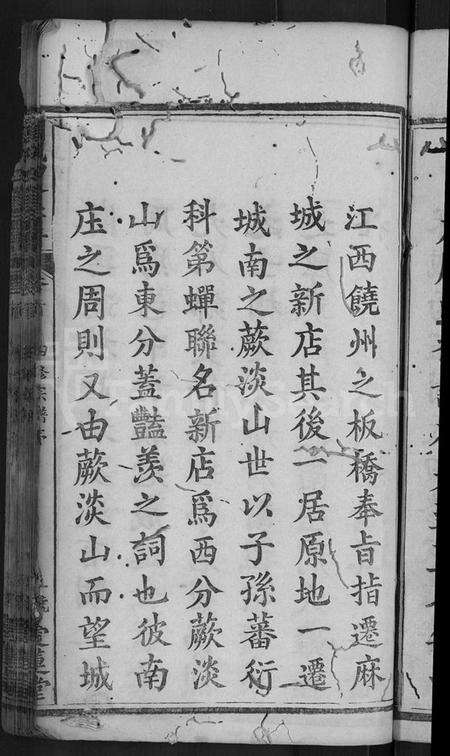 江西饒州之板橋奉旨指遷麻
城之新店其後一居原地一遷
城南之蕨淡山世以子孫蕃衍
科第蟬聯名新店爲西分蕨淡
山爲東分蓋豔羡之詞也彼南
庄之周則又由蕨淡山而望城